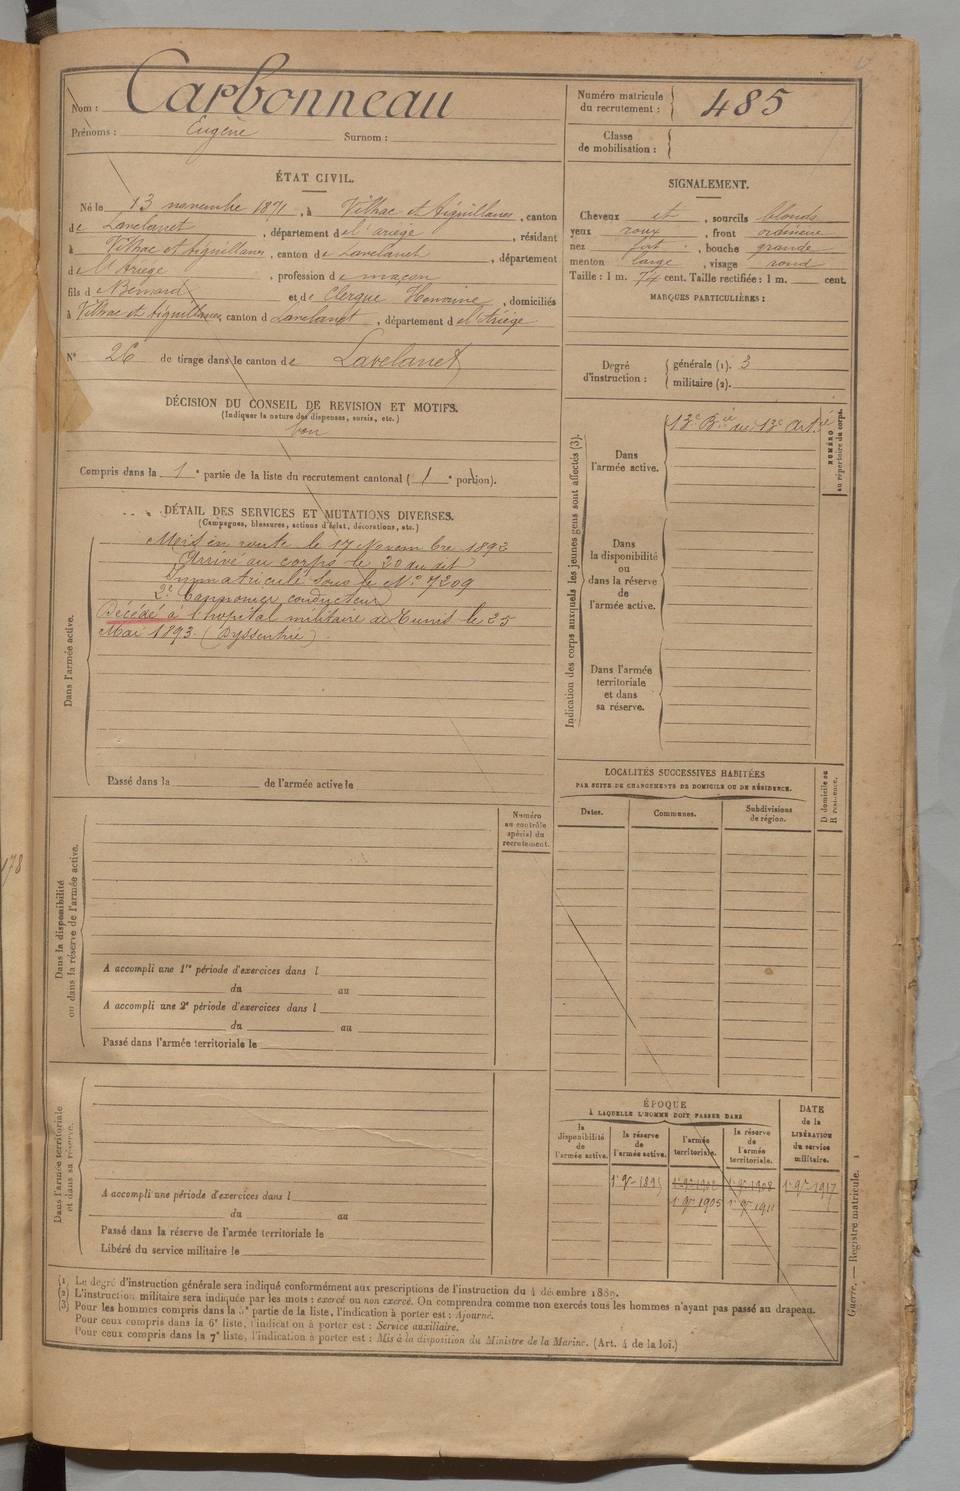 Nom : Carbonneau
Prénoms : Eugène Surnom :
Numéro matricule du recrutement : 485
Classe de mobilisation :
ÉTAT CIVIL.
Né le 13 novembre 1871, à Vilhac et Aiguillanes, canton
de Lavelanet, département de l'ariege, résidant
à Vilhac et Aiguillanes, canton de Lavelanet, département
de l'Ariege, profession de maçon
fils de Bernard et de Clergue Honorine, domiciliés
à Vilhac et Aiguillanes, canton d Lavelanet, département de l'Ariége
N° 26 de tirage dans le canton de Lavelanet
SIGNALEMENT.
Cheveux et, sourcils blonds
yeux roux, front ordinaire
nez fort, bouche grande
menton large, visage rond
Taille : 1 m. 74 cent. Taille rectifiée : 1 m. cent.
MARQUES PARTICULIÈRES :
Degré d'instruction : générale (1). 3
militaire (2).
DÉCISION DU CONSEIL DE REVISION ET MOTIFS.
(Indiquer la nature des dispenses, sursis, etc.)
bon
Compris dans la 1e partie de la liste du recrutement cantonal (1e portion).
DÉTAIL DES SERVICES ET MUTATIONS DIVERSES.
(Campagnes, blessures, actions d'éclat, décorations, etc.)
Dans l'armée active.
Mis en route le 17 Novembre 1892
Arrivé au corps le 20 du dit
Immatriculé sous le N° 7209
2e Cannonier conducteur
Décédé à l'hopital militaire de Tunis le 25
Mai 1893. (Dyssentrie).
Passé dans la de l'armée active le
Indication des corps auxquels les jeunes gens sont affectés (3).
NUMÉRO au répertoire du corps.
Dans l'armée active.
13e Bie du 13e Artie
Dans la disponibilité ou dans la réserve de l'armée active.
Dans l'armée territoriale et dans sa réserve.
LOCALITÉS SUCCESSIVES HABITÉES
PAR SUITE DE CHANGEMENTS DE DOMICILE OU DE RÉSIDENCE.
D domicile ou R résidence.
Dates. Communes. Subdivisions de région.
Numéro au contrôle spécial du recrutement.
Dans la disponibilité ou dans la réserve de l'armée active.
A accompli une 1re période d'exercices dans l
du au
A accompli une 2e période d'exercices dans l
du au
Passé dans l'armée territoriale le
178
Dans l'armée territoriale et dans sa réserve.
A accompli une période d'exercices dans l
du au
Passé dans la réserve de l'armée territoriale le
Libéré du service militaire le
ÉPOQUE
À LAQUELLE L'HOMME DOIT PASSER DANS
la disponibilité de l'armée active.
la réserve de l'armée active.
l'armée territoriale.
la réserve de l'armée territoriale.
DATE de la LIBÉRATION du service militaire.
1er 9re 1895 1er 9re 1902 1er 9re 1908 1er 9re 1917
1er 9re 1905 1er 9re 1911
(1) Le degré d'instruction générale sera indiqué conformément aux prescriptions de l'instruction du 4 décembre 1889.
(2) L'instruction militaire sera indiquée par les mots : exercé ou non exercé. On comprendra comme non exercés tous les hommes n'ayant pas passé au drapeau.
(3) Pour les hommes compris dans la 5e partie de la liste, l'indication à porter est : Ajourné.
Pour ceux compris dans la 6e liste, l'indication à porter est : Service auxiliaire.
Pour ceux compris dans la 7e liste, l'indication à porter est : Mis à la disposition du Ministre de la Marine. (Art. 4 de la loi.)
Guerre. — Registre matricule. 1